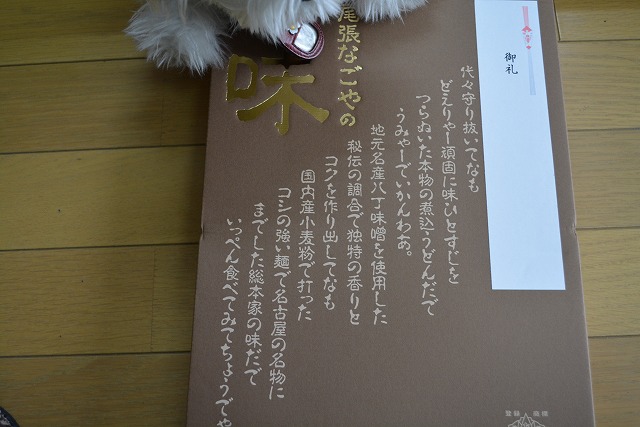 御礼
代々守り抜いてなも
どえりゃー頑固に味ひとすじを
つらぬいた本物の煮込うどんだで
うみゃーでいかんわあ。
地元名産八丁味噌を使用した
秘伝の調合で独特の香りと
コクを作り出してなも
国内産小麦粉で打った
コシの強い麺で名古屋の名物に
までした総本家の味だで
いっぺん食べてみてちょうでゃ
尾張なごやの
味
登録商標